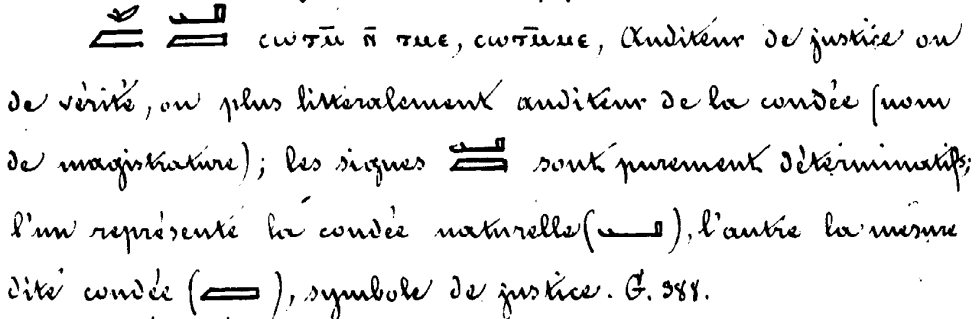 ⲥⲱⲧⲙ̄ ⲛ̄ ⲧⲙⲉ, ⲥⲱⲧⲙ̄ⲙⲉ, Auditeur de justice ou
de vérité, ou plus littéralement auditeur de la coudée (nom
de magistrature); les signes sont purement déterminatifs;
l'un représente la coudée naturelle ( ), l'autre la mesure
dite coudée ( ), symbole de justice. G. 388.